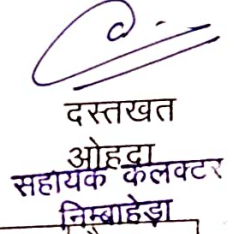 दस्तखत
ओहदा
सहायक कलक्टर
निम्बाहेड़ा